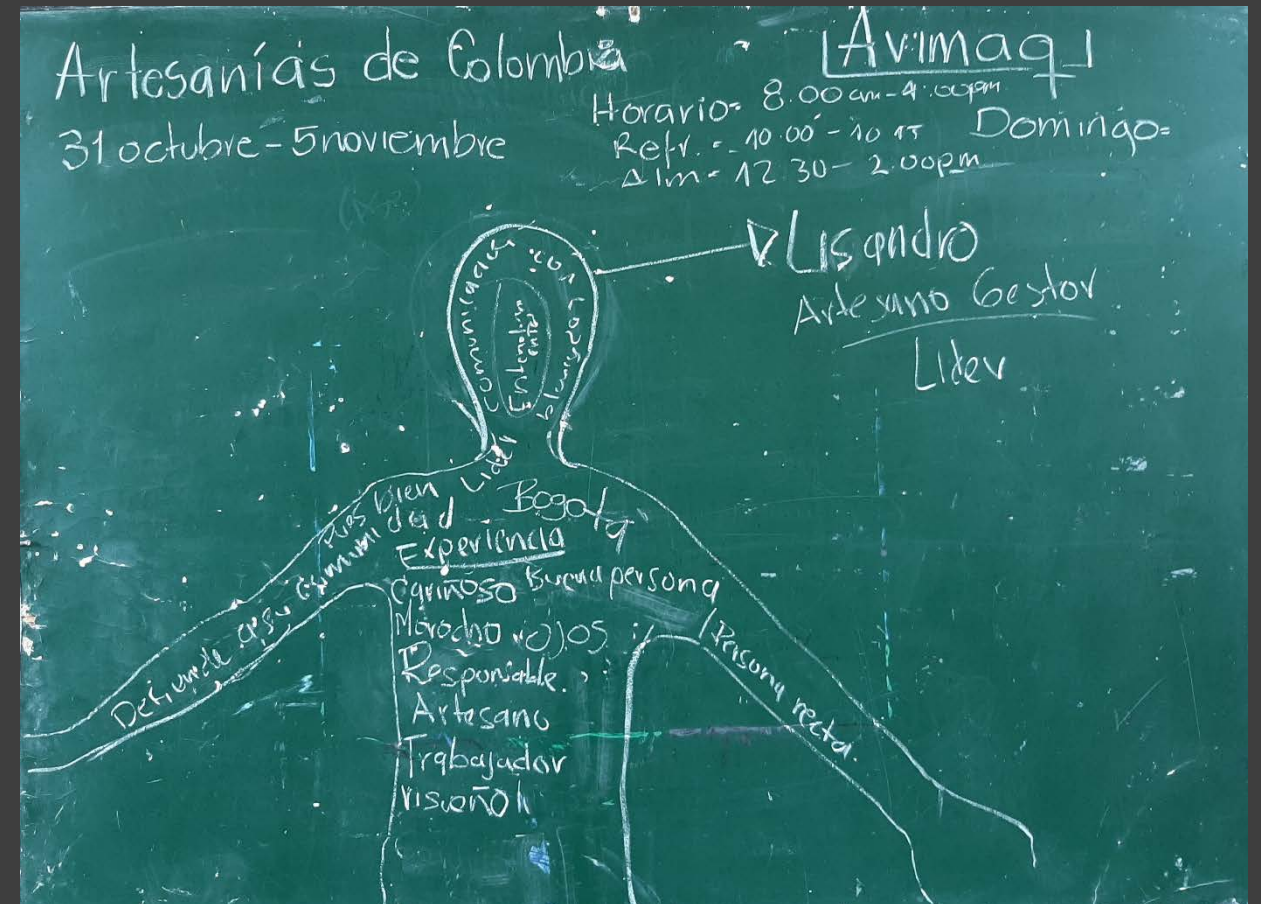 Artesanías de Colombia
31 octubre - 5 noviembre
Avimaq
Horario= 8.00 am - 4.00pm
Refr. = 10.00 - 10 15
Alm = 12.30 - 2.00pm
Domingo=
Lisandro
Artesano Gestor
Lider
Comunicacion con los demas
Lider
bien
Bogota
Defiende a su comunidad
Experiencia
Cariñoso Buena persona
ojos
Responsable.
Artesano
Trabajador
risueño
Persona recta.